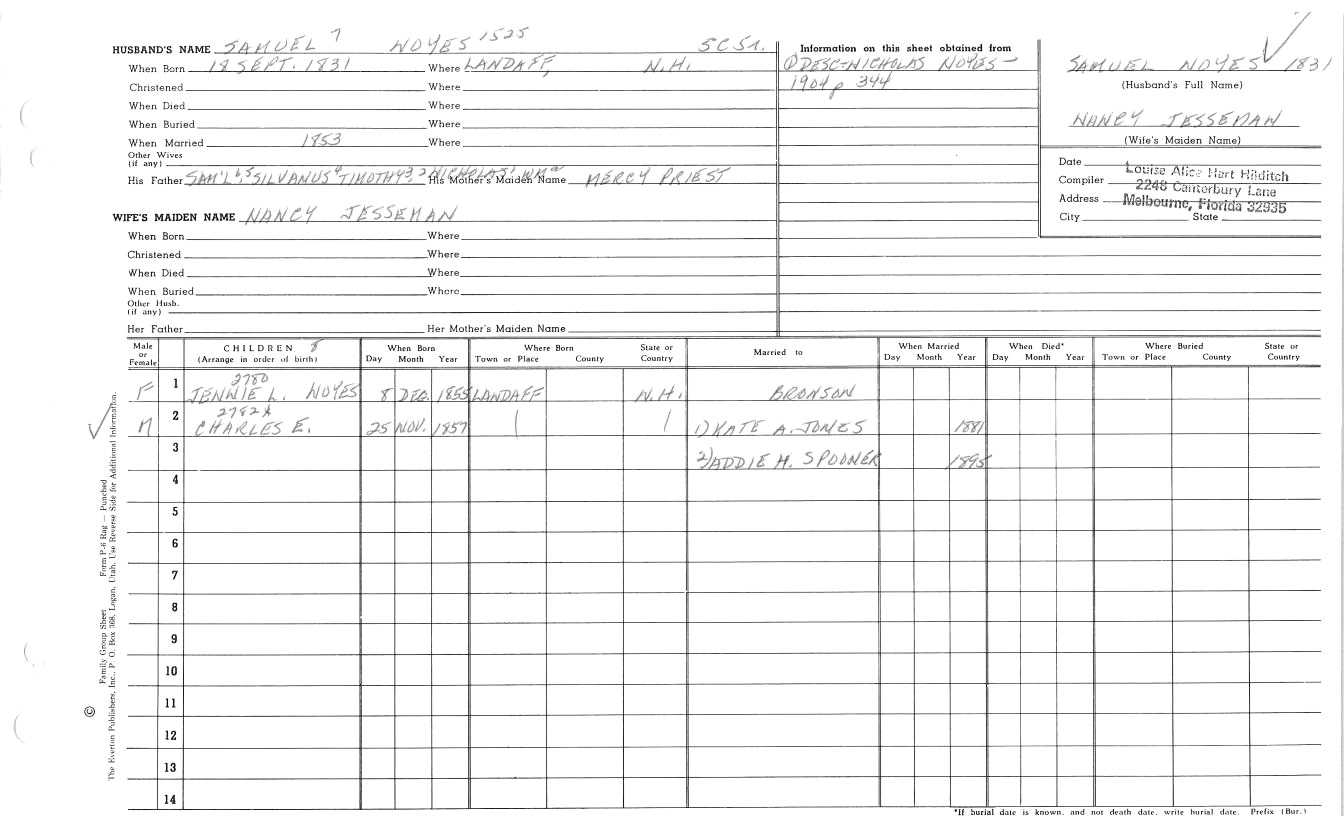 HUSBAND'S NAME SAMUEL 7 NOYES 1525 5C51.
When Born 18 SEPT. 1831 Where LANDAFF, N.H.
Christened Where
When Died Where
When Buried Where
When Married 1853 Where
Other Wives
(if any)
His Father SAM'L 6, 5 SILVANUS 4 TIMOTHY 3, 2 NICHOLAS' WM a His Mother's Maiden Name MERCY PRIEST
WIFE'S MAIDEN NAME NANCY JESSEMAN
When Born Where
Christened Where
When Died Where
When Buried Where
Other Husb.
(if any)
Her Father Her Mother's Maiden Name
Information on this sheet obtained from
① DESC-NICHOLAS NOYES —
1904 p 344
SAMUEL NOYES 1831
(Husband's Full Name)
NANCY JESSEMAN
(Wife's Maiden Name)
Date
Compiler Louise Alice Hart Hilditch
Address 2248 Canterbury Lane
Melbourne, Florida 32935
City State
Male or Female
CHILDREN 8
(Arrange in order of birth)
When Born
Day Month Year
Where Born
Town or Place County
State or Country
Married to
When Married
Day Month Year
When Died*
Day Month Year
Where Buried
Town or Place County
State or Country
2780
F 1 JENNIE L. NOYES 8 DEC. 1855 LANDAFF N.H. BRONSON
2782*
M 2 CHARLES E. 25 NOV. 1857 | | 1) KATE A. JONES 1881
3 2) ADDIE H. SPOONER 1895
4
5
6
7
8
9
10
11
12
13
14
*If burial date is known, and not death date, write burial date. Prefix (Bur.)
© Family Group Sheet Form P-6 Rag — Punched
The Everton Publishers, Inc., P. O. Box 368, Logan, Utah. Use Reverse Side for Additional Information.